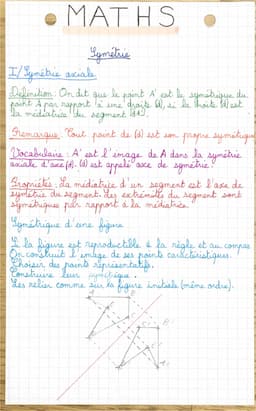 MATHS
Symétrie
I/ Symétrie axiale
Définition : On dit que le point A' est le symétrique du
point A par rapport à une droite (d), si la droite (d) est
la médiatrice du segment [AA'].
Remarque : Tout point de (d) est son propre symétrique
Vocabulaire : A' est l'image de A dans la symétrie
axiale d'axe (d). (d) est appelé axe de symétrie.
Propriétés : La médiatrice d'un segment est l'axe de
symétrie du segment. Les extrémités du segment sont
symétriques par rapport à la médiatrice.
Symétrique d'une figure
Si la figure est reproductible à la règle et au compas
On construit l'image de ses points caractéristiques.
Choisir des points représentatifs.
Construire leur symétrique.
Les relier comme sur la figure initiale (même ordre).
A B